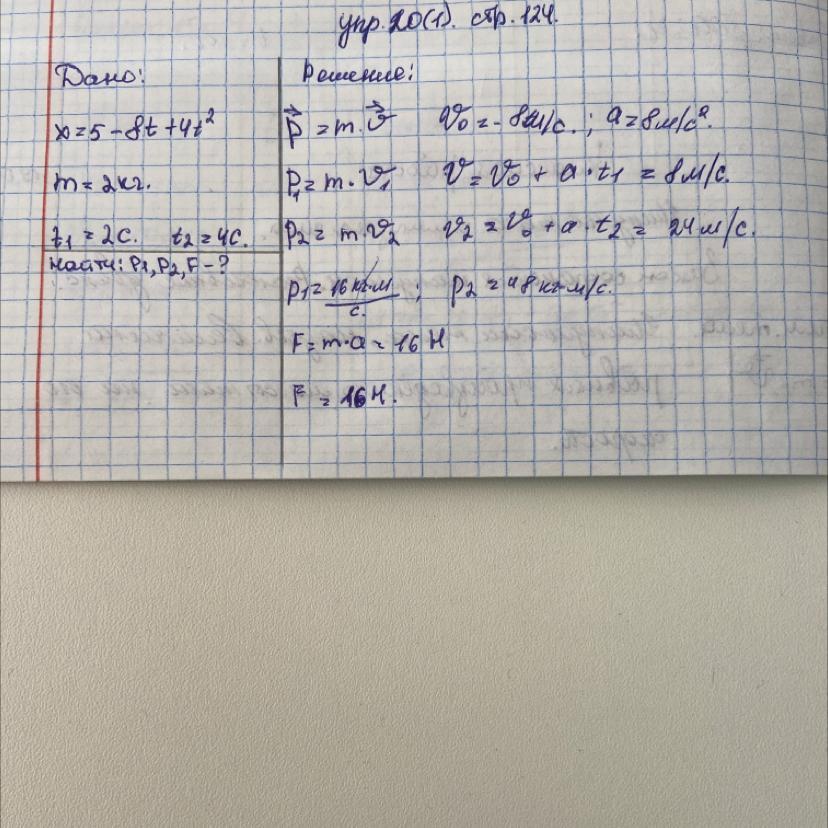 упр. 20(1). стр. 124.
Дано:
x = 5 - 8t + 4t²
m = 2кг.
t₁ = 2с. t₂ = 4с.
Найти: P₁, P₂, F - ?
Решение:
p⃗ = m · v⃗ v₀ = - 8м/с. ; a = 8м/с².
P₁ = m · v₁ v = v₀ + a · t₁ = 8м/с.
P₂ = m · v₂ v₂ = v₀ + a · t₂ = 24м/с.
P₁ = 16кг·м/с. ; P₂ = 48кг·м/с.
F = m · a = 16Н
F = 16Н.